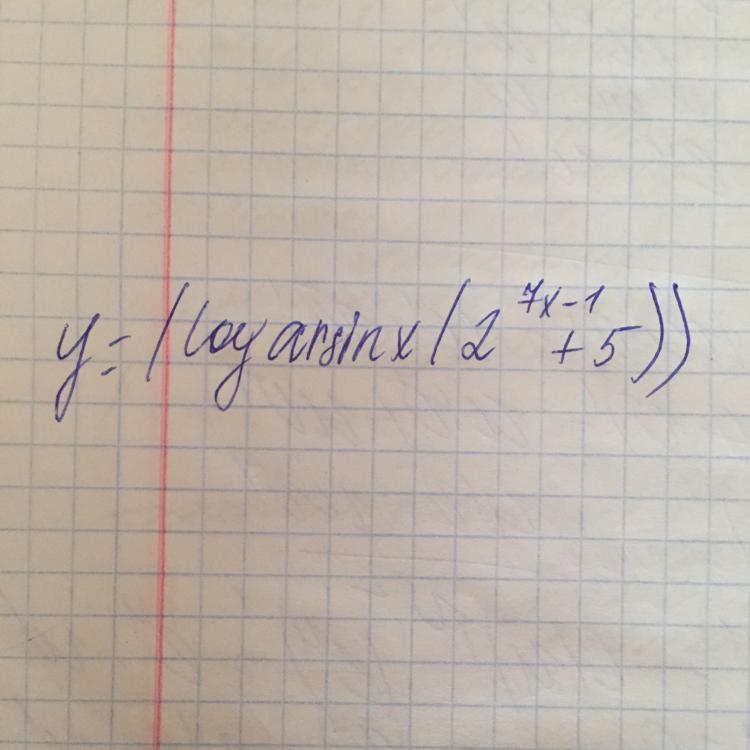 y = (log arsinx (2^{7x-1} + 5))